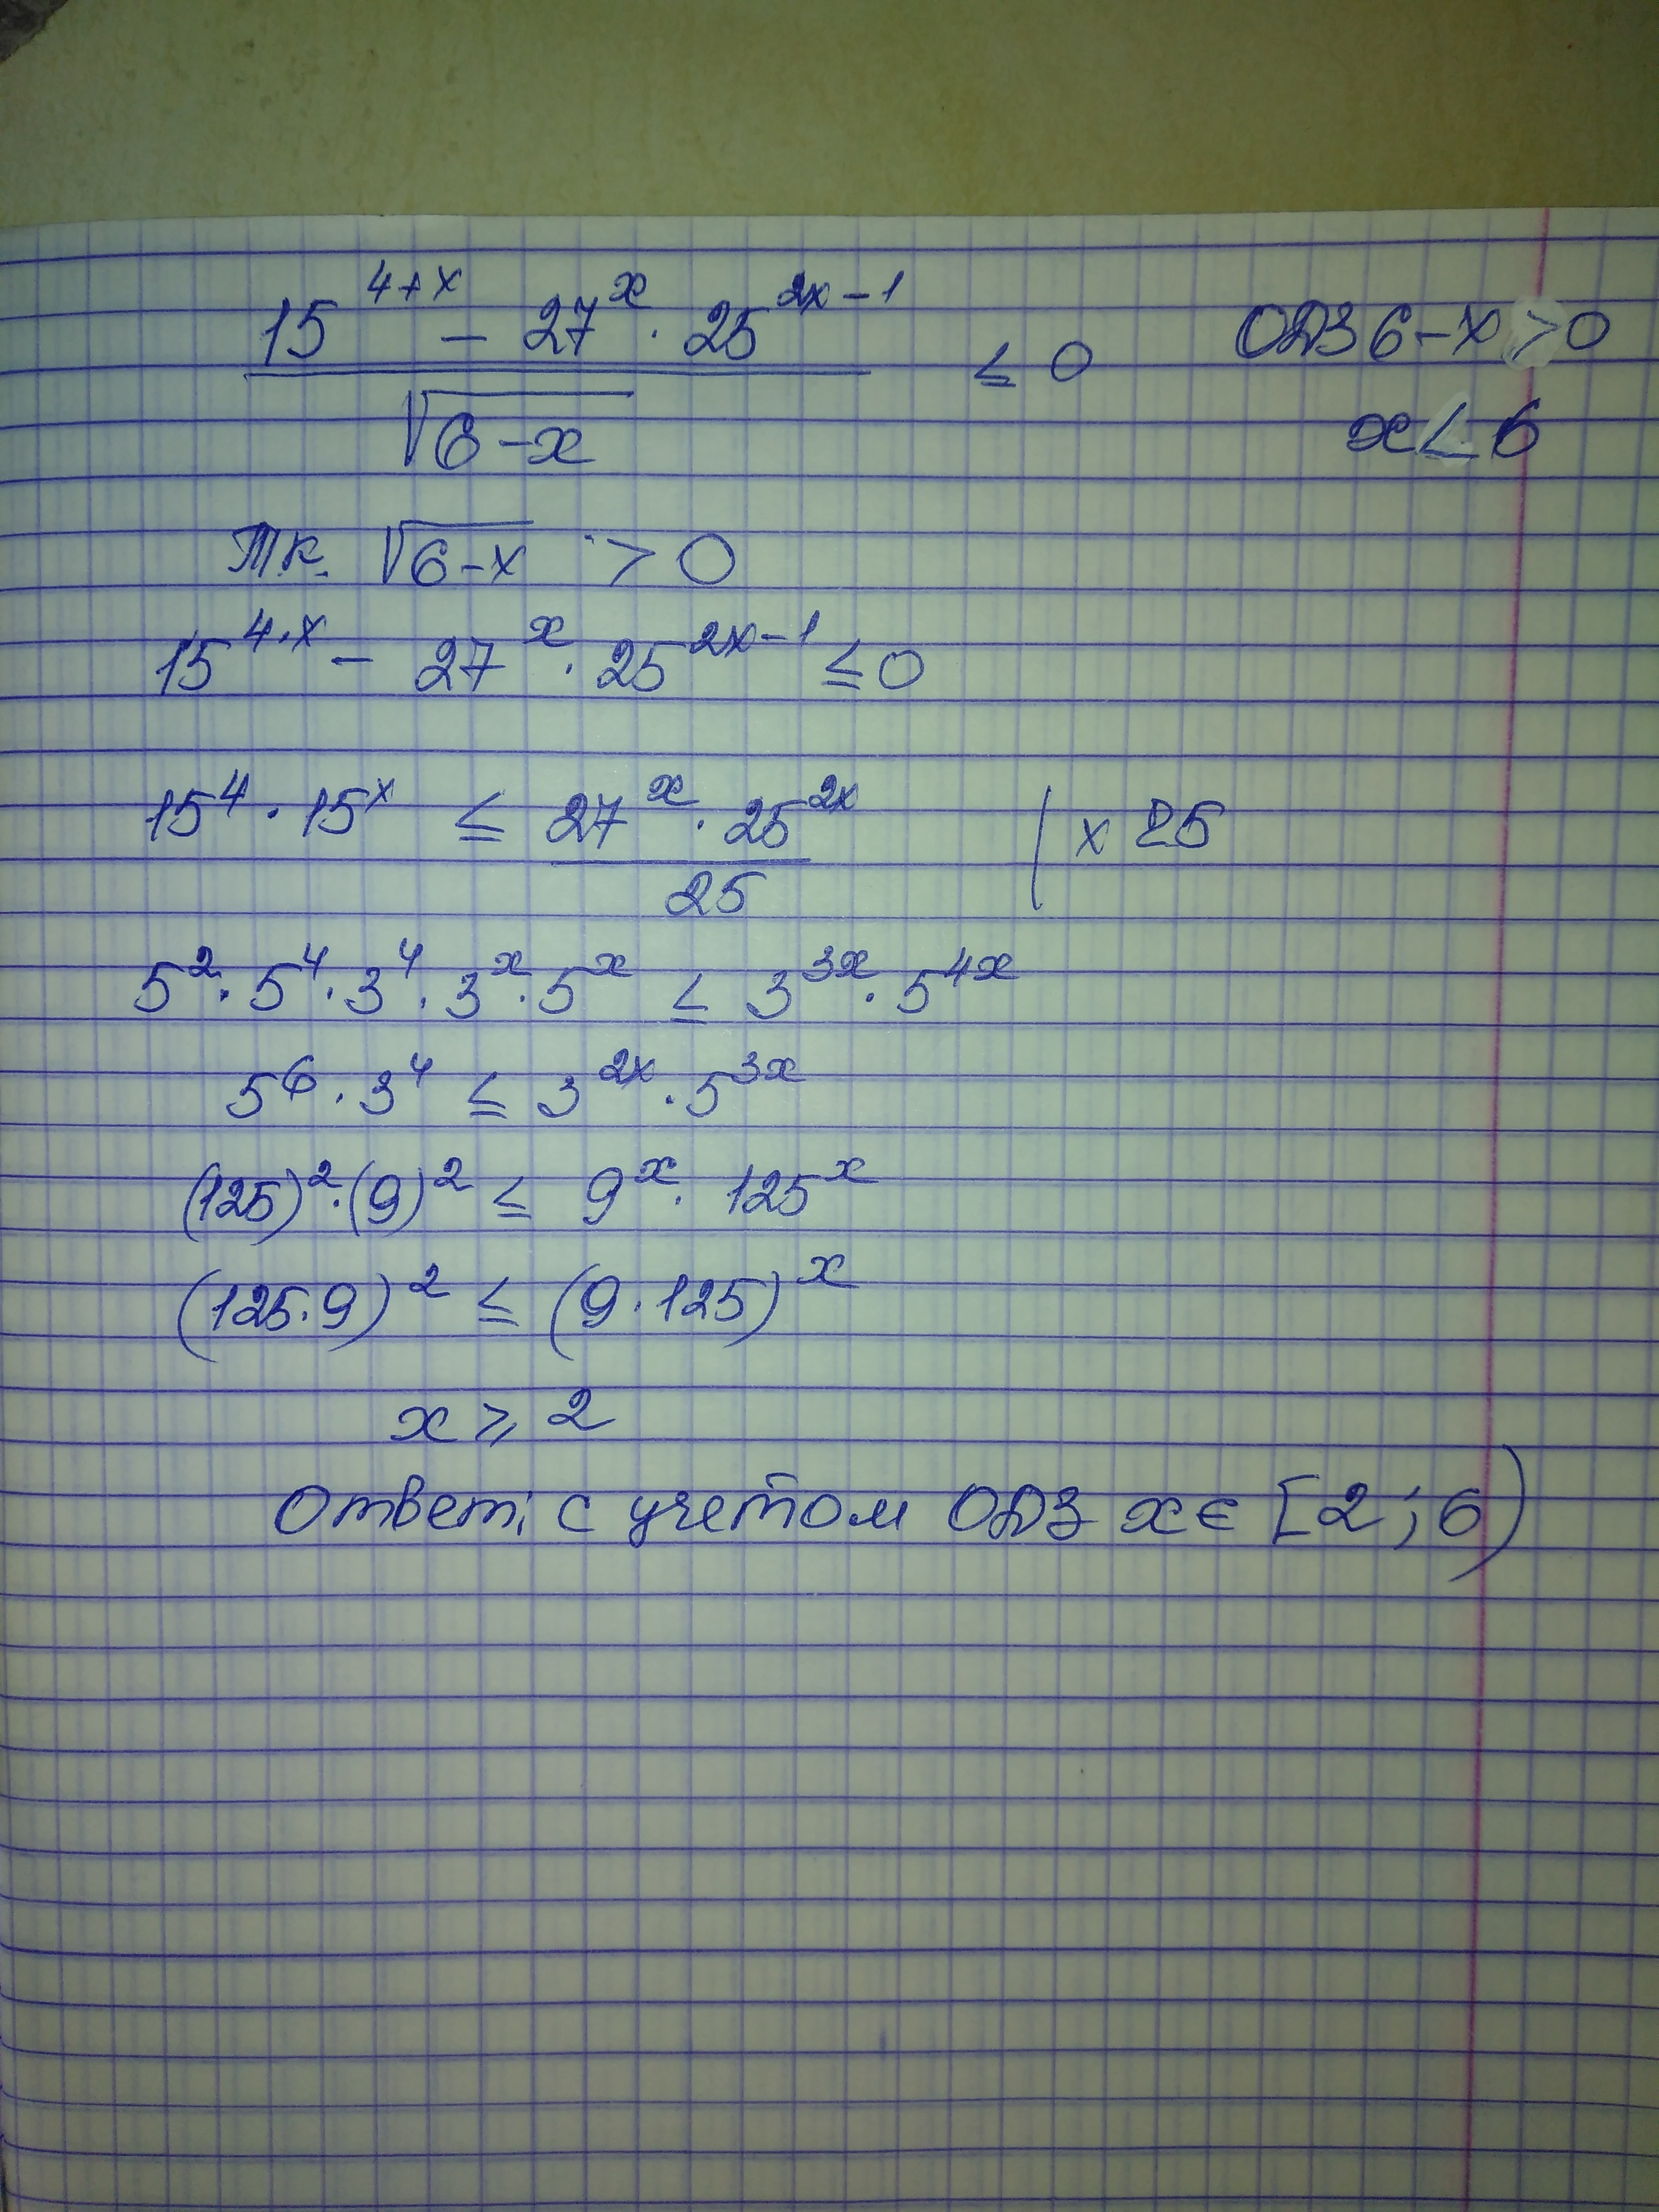 15^(4+x) − 27^x · 25^(2x−1) / √(6−x) ≤ 0
ОДЗ 6−x > 0
x < 6
Т.к. √(6−x) > 0
15^(4+x) − 27^x · 25^(2x−1) ≤ 0
15^4 · 15^x ≤ 27^x · 25^(2x) / 25 | × 25
5^2 · 5^4 · 3^4 · 3^x · 5^x ≤ 3^(3x) · 5^(4x)
5^6 · 3^4 ≤ 3^(2x) · 5^(3x)
(125)^2 · (9)^2 ≤ 9^x · 125^x
(125·9)^2 ≤ (9·125)^x
x ⩾ 2
Ответ: с учетом ОДЗ x ∈ [2; 6)